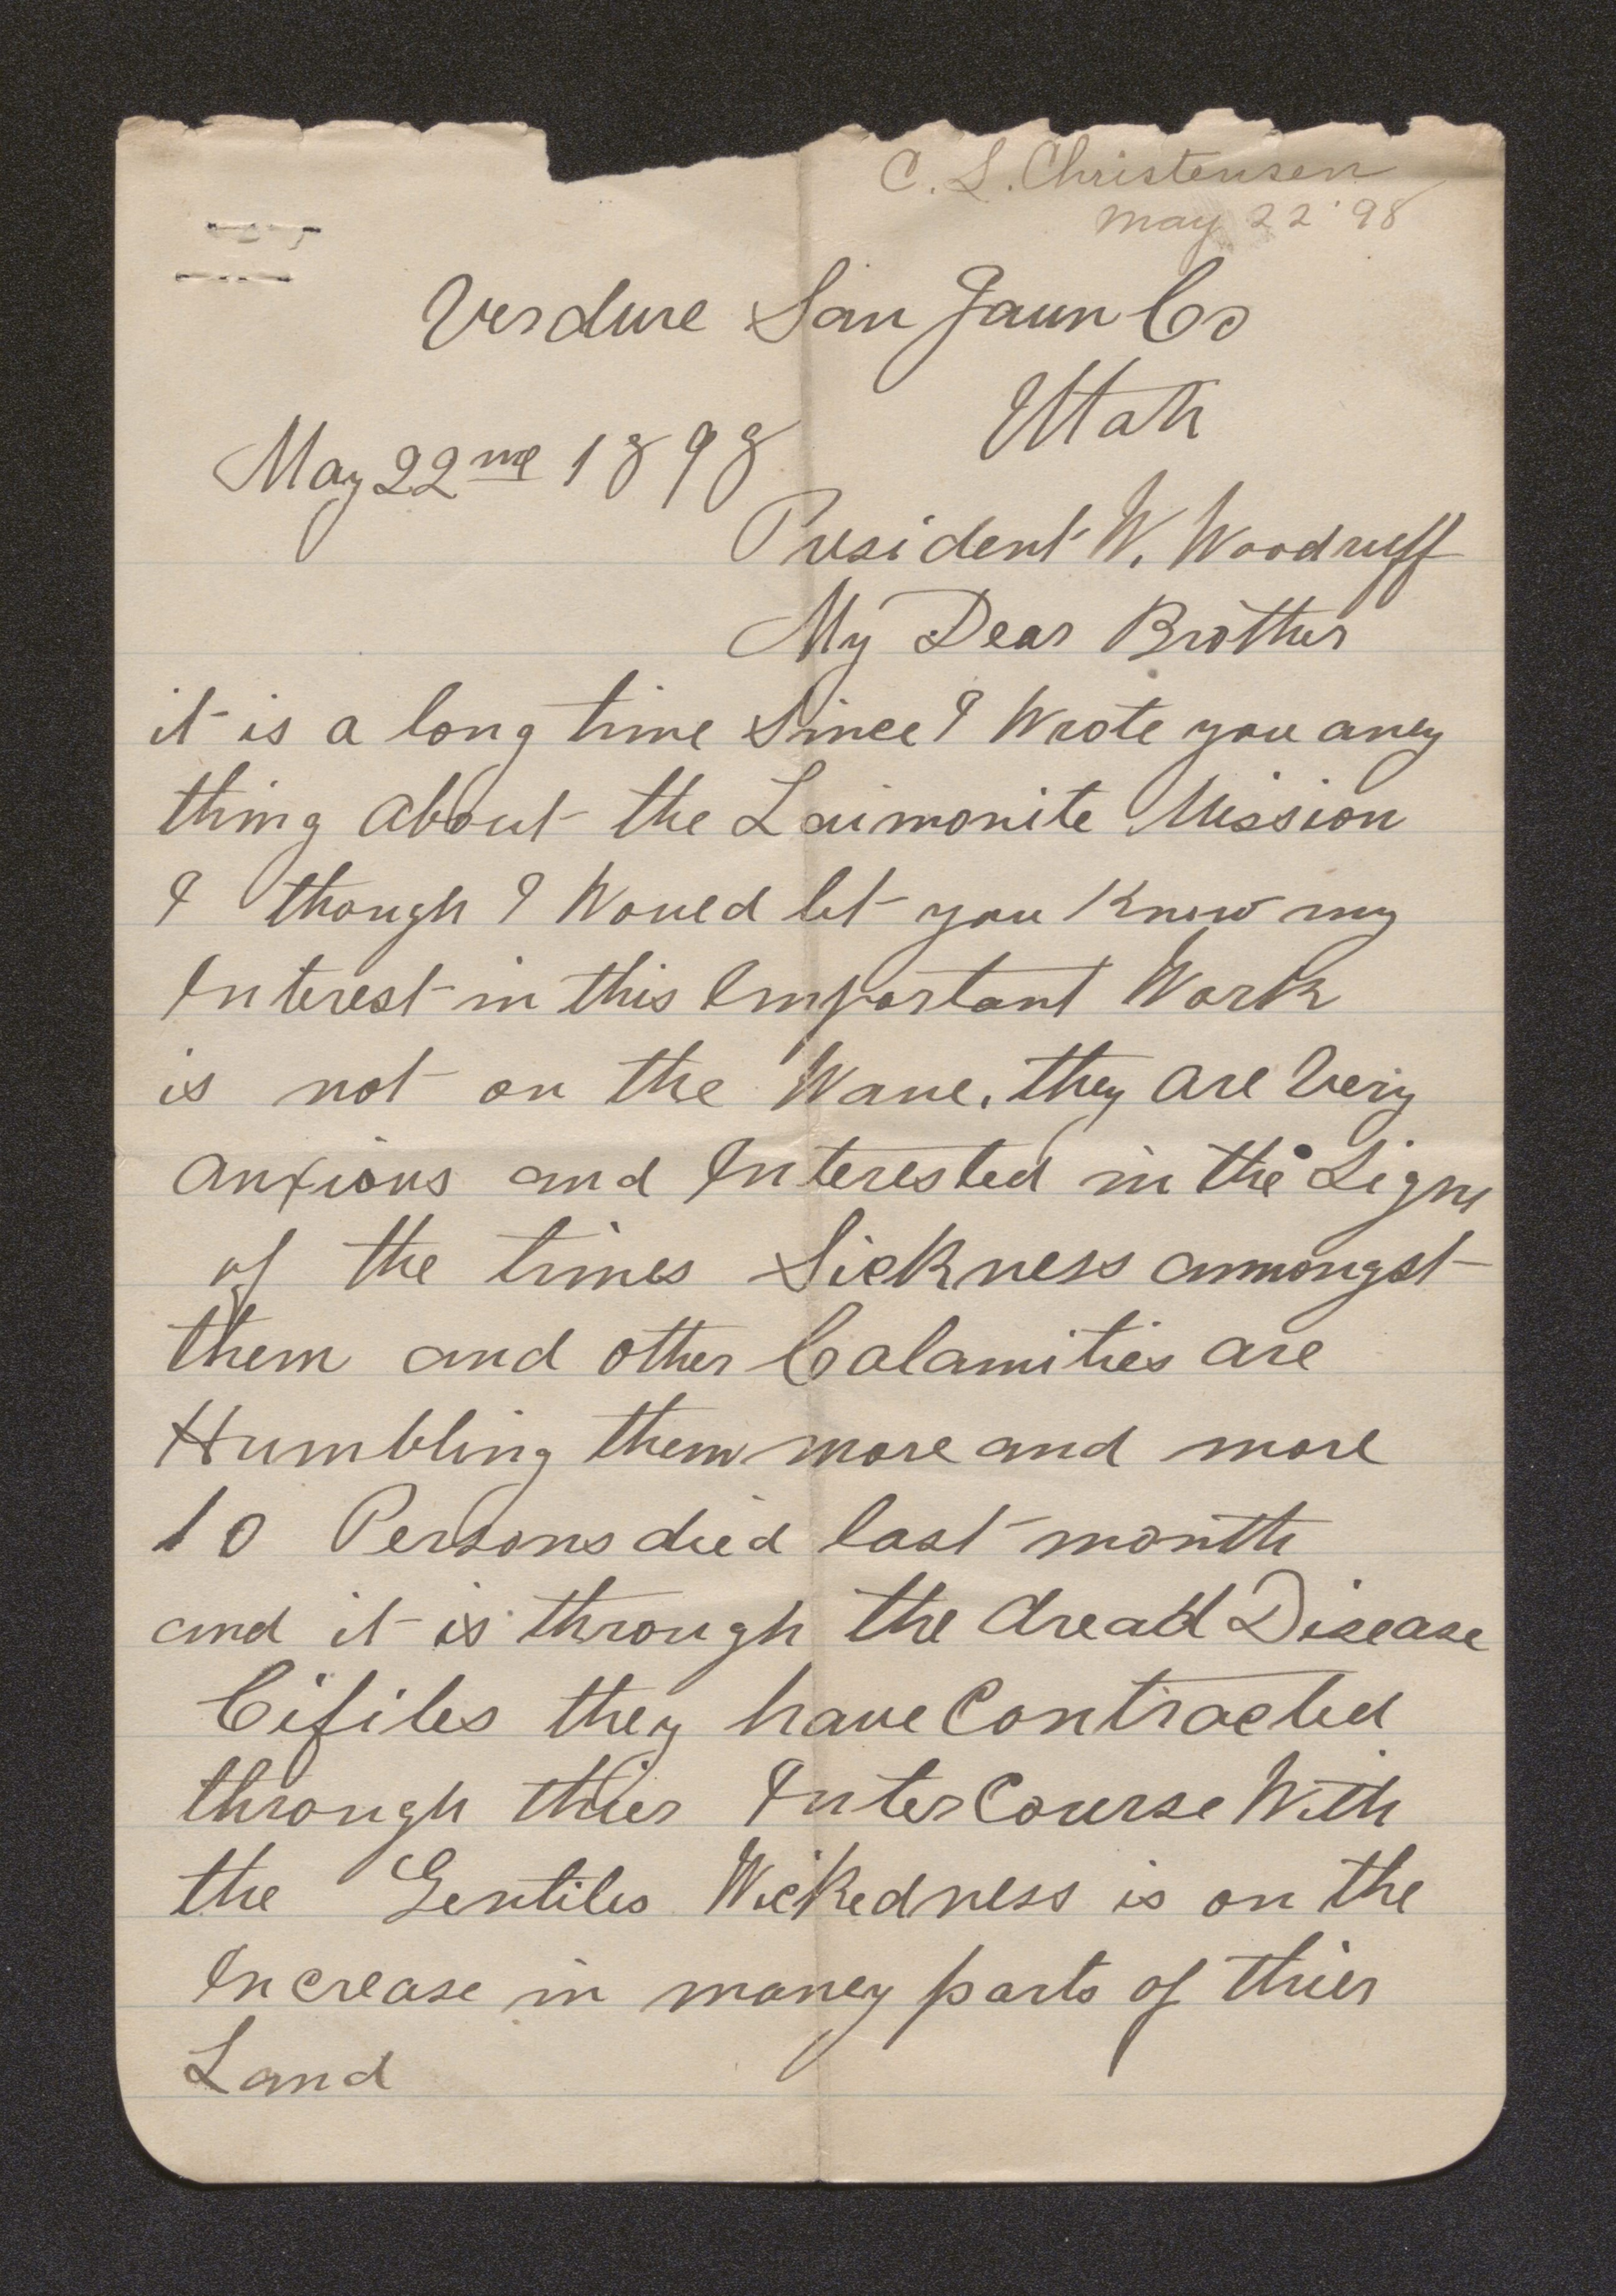 C. L. Christensen
May 22 '98
Verdure San Jaun Co
Utah
May 22nd 1898
President W. Woodruff
My Dear Brother
it is a long time Since I Wrote you aney
thing about the Laimonite Mission
I though I Would let you Know my
Interest in this Important Work
is not on the Wane. they are Very
anxious and Interested in the Signs
of the times Sickness ammongst
them and other Calamities are
Humbling them more and more
10 Persons died last month
and it is through the dread Disease
Cifiles they have Contracted
through thier InterCourse With
the Gentiles Wickedness is on the
Increase in maney parts of thier
Land